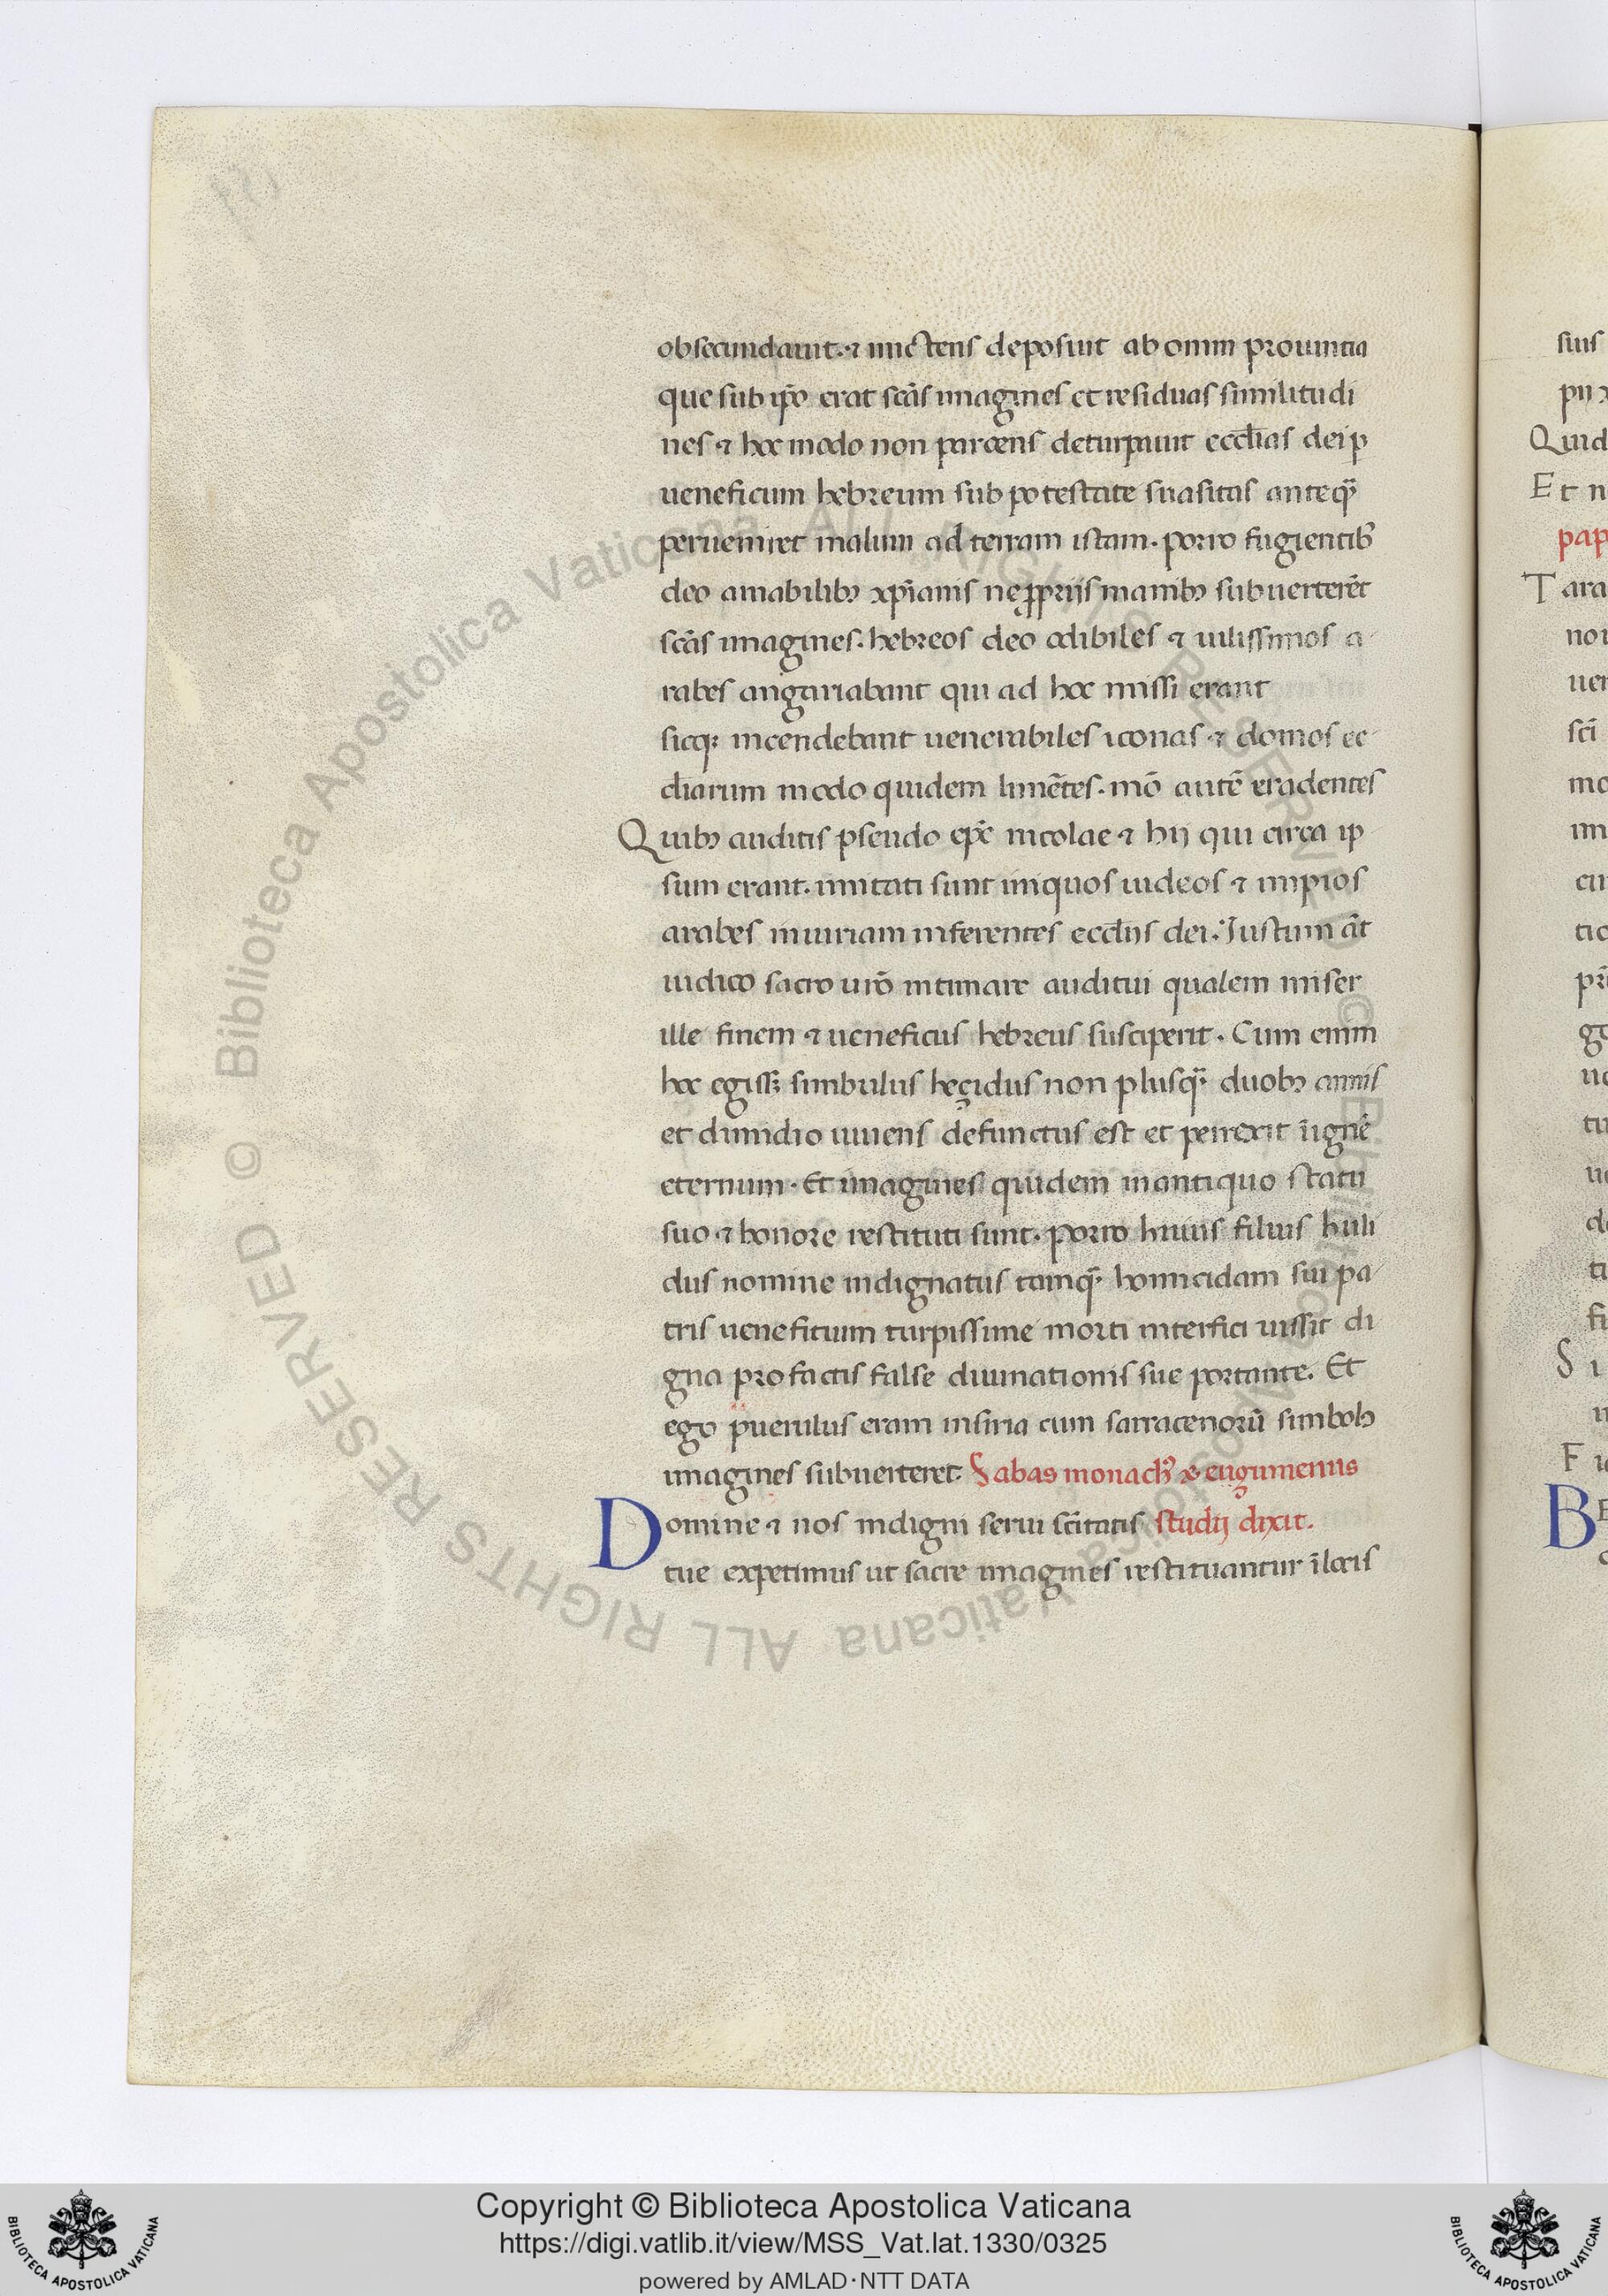 obsecundauit. ⁊ mictens deposuit ab omni prouintia
que sub ip̄o erat scās imagines et residuas similitudi
nes ⁊ hoc modo non parcens deturpauit eccl̄ias dei p
ueneficum hebreum sub potestate sua sitas anteq̄
perueniret malum ad terram istam. porro fugientib᾽
deo amabilibꝫ xp̄ianis ne ꝓprijs manibꝫ subuerterēt
scās imagines. hebreos deo odibiles ⁊ uilissimos a
rabes angariabant qui ad hoc missi erant
sicqꝫ incendebant uenerabiles iconas ⁊ domos ec
cl̄iarum modo quidem linētes. mō autē eradentes
Quibꝫ auditis pseudo ep̄c nicolae ⁊ hij qui circa ip
sum erant. imitati sunt iniquos iudeos ⁊ impios
arabes iniuriam inferentes eccl̄ijs dei. Justum āt
iudico sacro urō intimare auditui qualem miser
ille finem ⁊ ueneficus hebreus susciperit. Cum enim
hoc egissꝫ simbulus heçidus non plusq̄ duobꝫ annis
et dimidio uiuens defunctus est et perrexit īignē
eternum. Et imagines quidem in antiquo statu
suo ⁊ honore restituti sunt. porro huius filius huli
dus nomine indignatus tamq̄ homicidam sui pa
tris ueneficum turpissime morti interfici iussit di
gna pro factis false diuinationis sue portante. Et
ego puerulus eram in siria cum sarracenorū simbolꝫ
imagines subuerteret. Sabas monach᾽ & eugumenus
Domine ⁊ nos indigni serui scītatis studij dixit.
tue expetimus ut sacre imagines restituantur ī locis
suis
pii
Quid
Et n
pap
Tara
non
uer
scī
mo
im
cu
tio
prī
go
uo
tu
ue
de
ti
fi
Si
u
F
BE
© Biblioteca Apostolica Vaticana ALL RIGHTS RESERVED © Biblioteca Apostolica Vaticana ALL RIGHTS RESERVED
Copyright © Biblioteca Apostolica Vaticana
https://digi.vatlib.it/view/MSS_Vat.lat.1330/0325
powered by AMLAD·NTT DATA
BIBLIOTECA APOSTOLICA VATICANA
BIBLIOTECA APOSTOLICA VATICANA